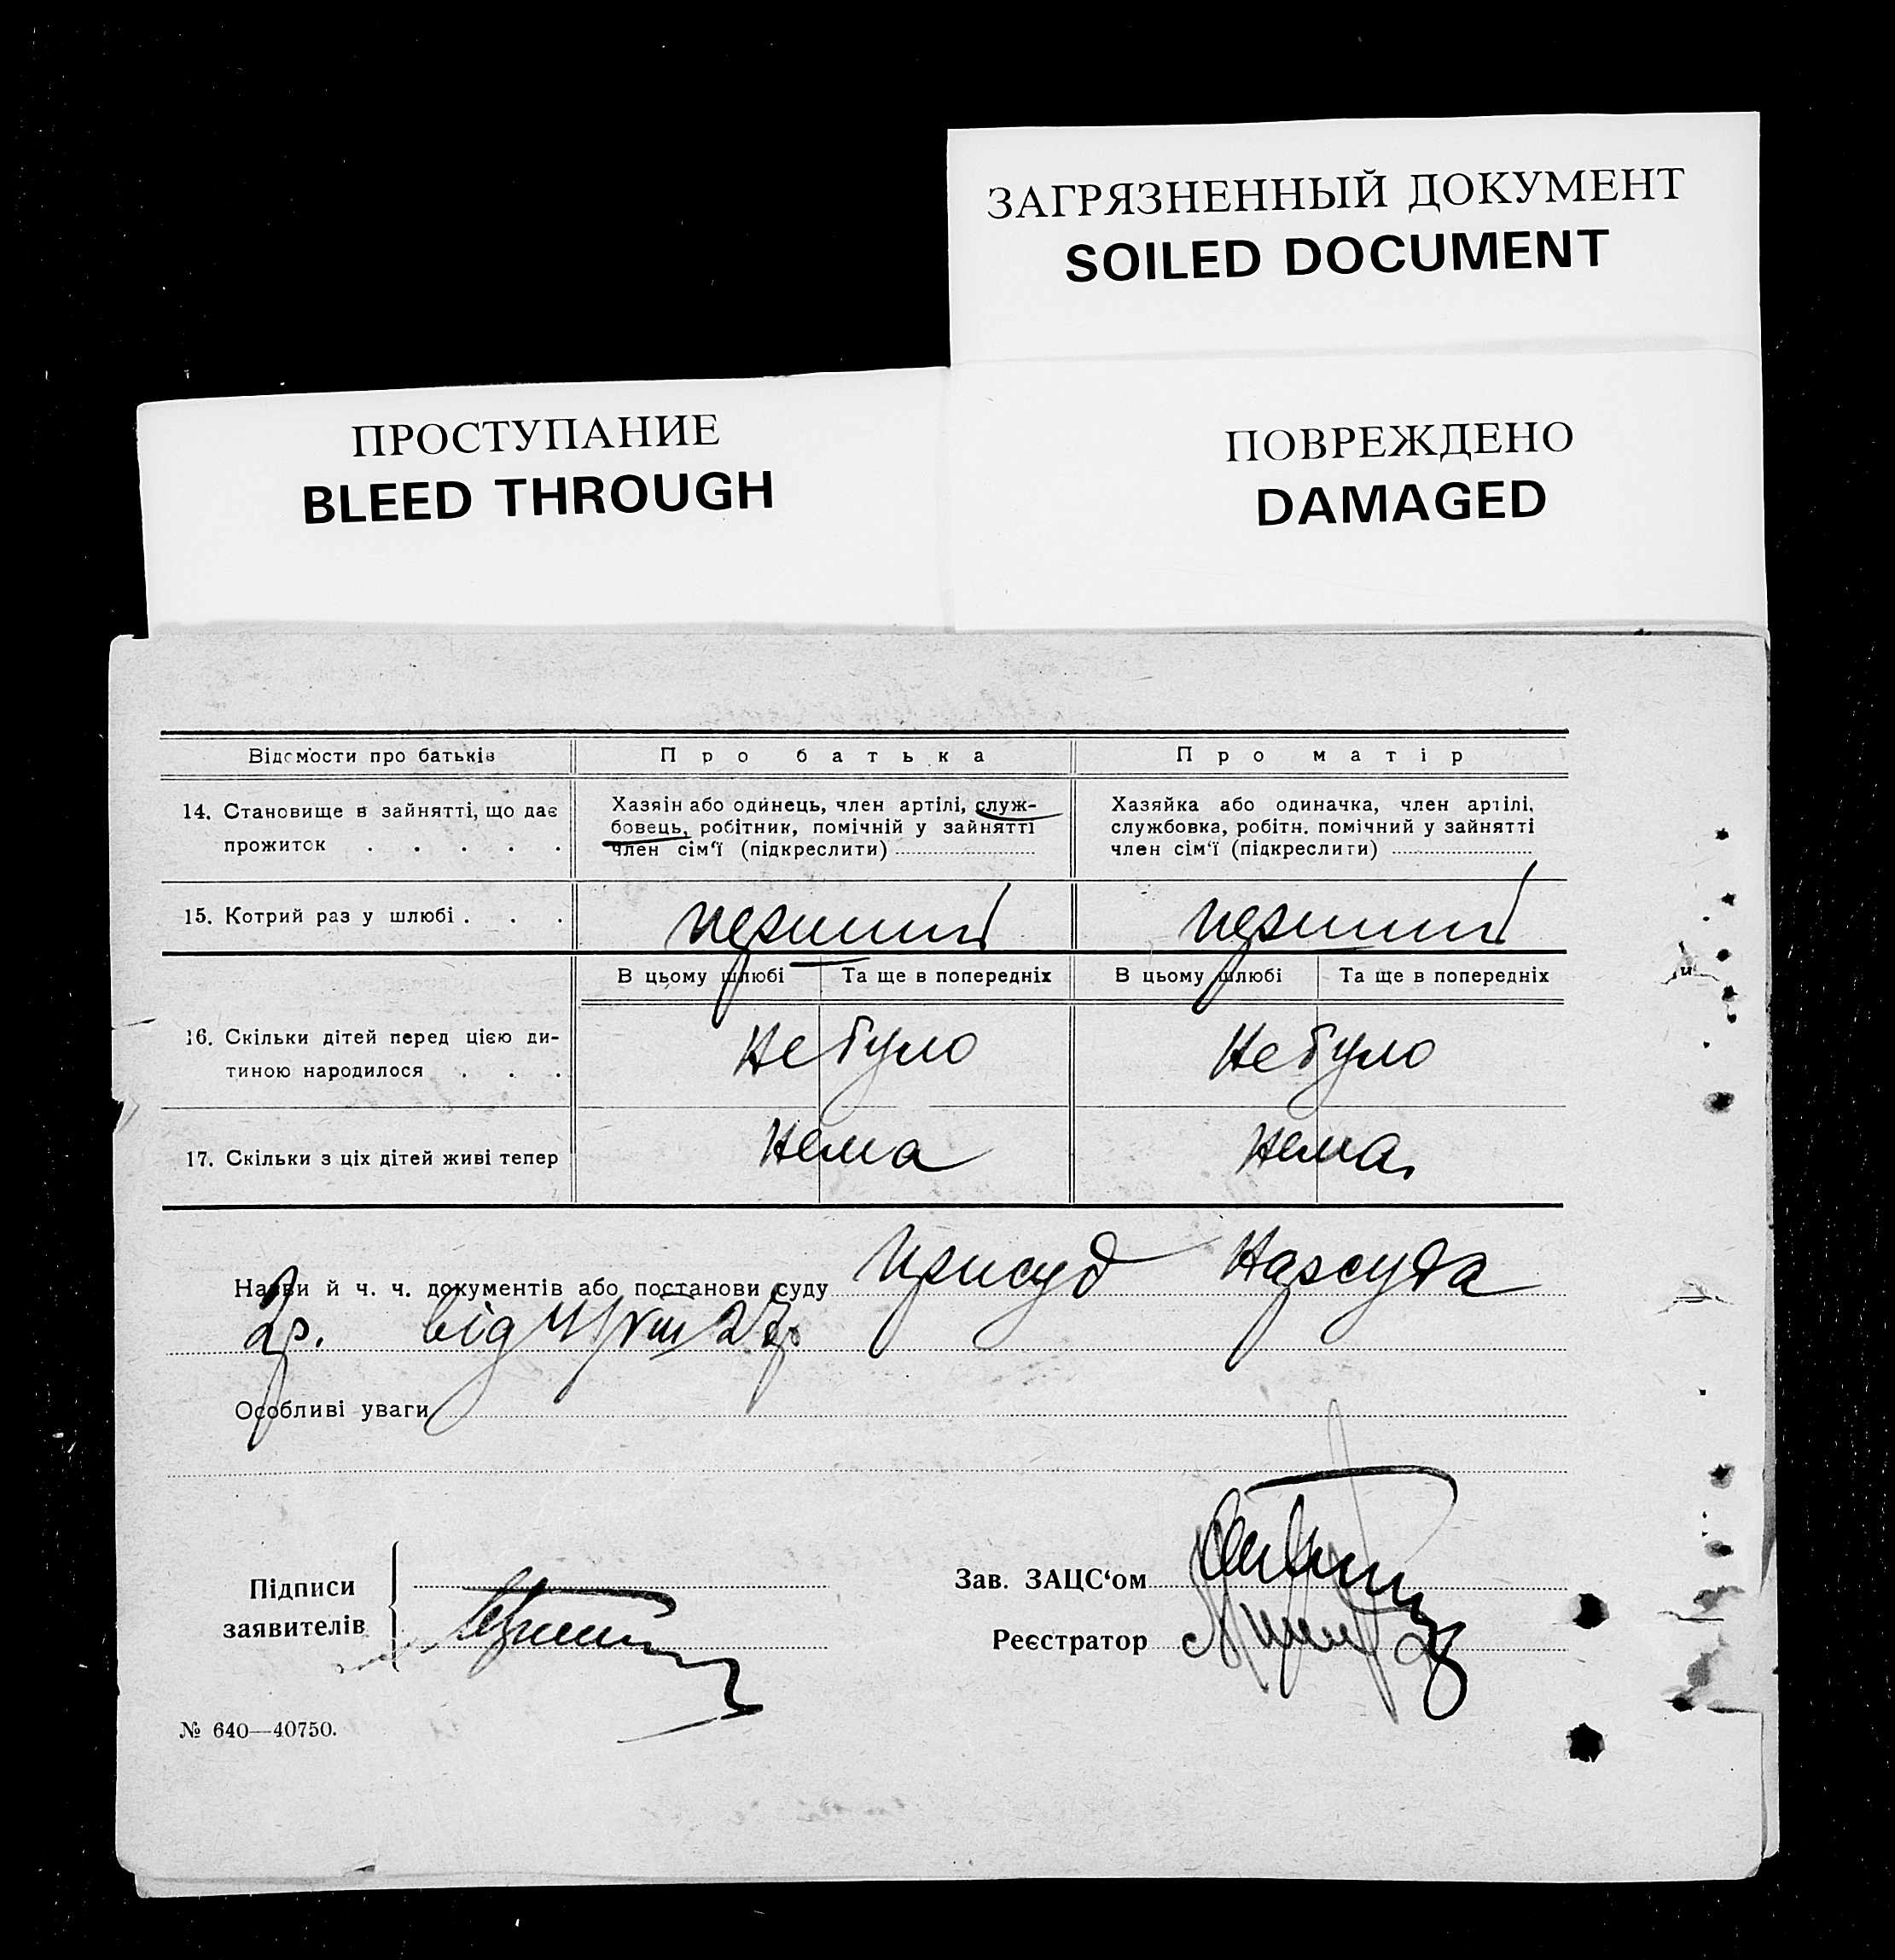 ЗАГРЯЗНЕННЫЙ ДОКУМЕНТ
SOILED DOCUMENT
ПРОСТУПАНИЕ
BLEED THROUGH
ПОВРЕЖДЕНО
DAMAGED
Відомости про батьків
Про батька
Про матір
14. Становище в зайнятті, що дає
прожиток . . . . .
Хазяїн або одинець, член артілі, служ-
бовець, робітник, помічній у зайнятті
член сім'ї (підкреслити)
Хазяйка або одиначка, член артілі,
службовка, робітн. помічний у зайнятті
член сім'ї (підкреслити)
15. Котрий раз у шлюбі . . .
перший
перший
В цьому шлюбі
Та ще в попередніх
В цьому шлюбі
Та ще в попередніх
16. Скільки дітей перед цією ди-
тиною народилося . . .
Не було
Не було
17. Скільки з ціх дітей живі тепер
Нема
Нема
Назви й ч. ч. документів або постанови суду присуд Нарсуда
від
Особливі уваги
Підписи
заявителів
Зав. ЗАЦС'ом
Реєстратор
№ 640—40750.